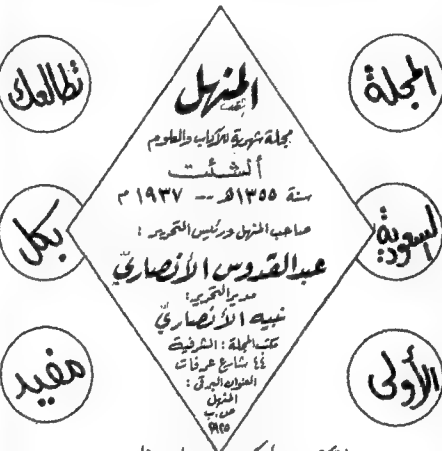 المجلة
السعودية
الأولى
تطالعك
بكل
مفيد
المنهل
مجلة شهرية للآداب والعلوم
أنشئت
سنة ١٣٥٥هـ -- ١٩٣٧ م
صاحب المنهل ورئيس التحرير :
عبد القدوس الأنصاري
مدير التحرير:
نبيه الأنصاري
مكتب المجلة : الشرفية
٤٤ شارع عرفات
العنوان البرقي :
المنهل
ص.ب
٢٩٢٥